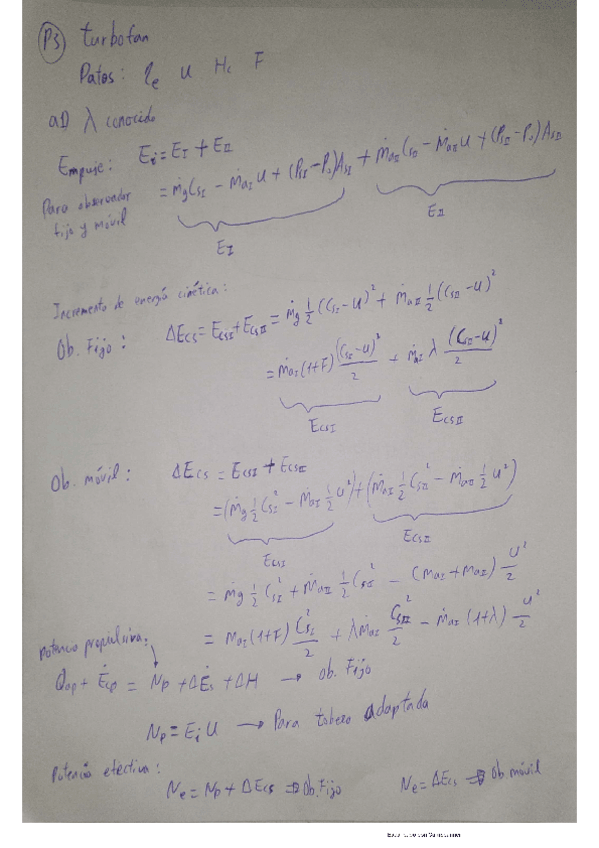 P3 turbofan
Datos: η_e u H_c F
a1) λ conocido
Empuje: E_i = E_I + E_II
Para observador fijo y móvil
= ṁ_g C_sI - ṁ_aI u + (P_sI - P_0) A_sI + ṁ_aII C_sII - ṁ_aII u + (P_sII - P_0) A_sII
E_I E_II
Incremento de energía cinética:
Ob. Fijo: ΔE_CS = E_CSI + E_CSII = ṁ_g 1/2 (C_sI - u)^2 + ṁ_aII 1/2 (C_sII - u)^2
= ṁ_aI (1+F) (C_sI - u)^2/2 + ṁ_aI λ (C_sII - u)^2/2
E_CSI E_CSII
Ob. móvil: ΔE_CS = E_CSI + E_CSII
= (ṁ_g 1/2 C_sI^2 - ṁ_aI 1/2 u^2) + (ṁ_aII 1/2 C_sII^2 - ṁ_aII 1/2 u^2)
E_CSI E_CSII
= ṁ_g 1/2 C_sI^2 + ṁ_aII 1/2 C_sII^2 - (ṁ_aI + ṁ_aII) u^2/2
= ṁ_aI (1+F) C_sI^2/2 + λ ṁ_aI C_sII^2/2 - ṁ_aI (1+λ) u^2/2
potencia propulsiva:
Q_ap + Ė_cp = N_p + ΔĖ_s + ΔH → Ob. Fijo
N_p = E_i u → Para tobera adaptada
Potencia efectiva:
N_e = N_p + ΔE_CS ⇒ Ob. Fijo N_e = ΔE_CS ⇒ Ob. móvil